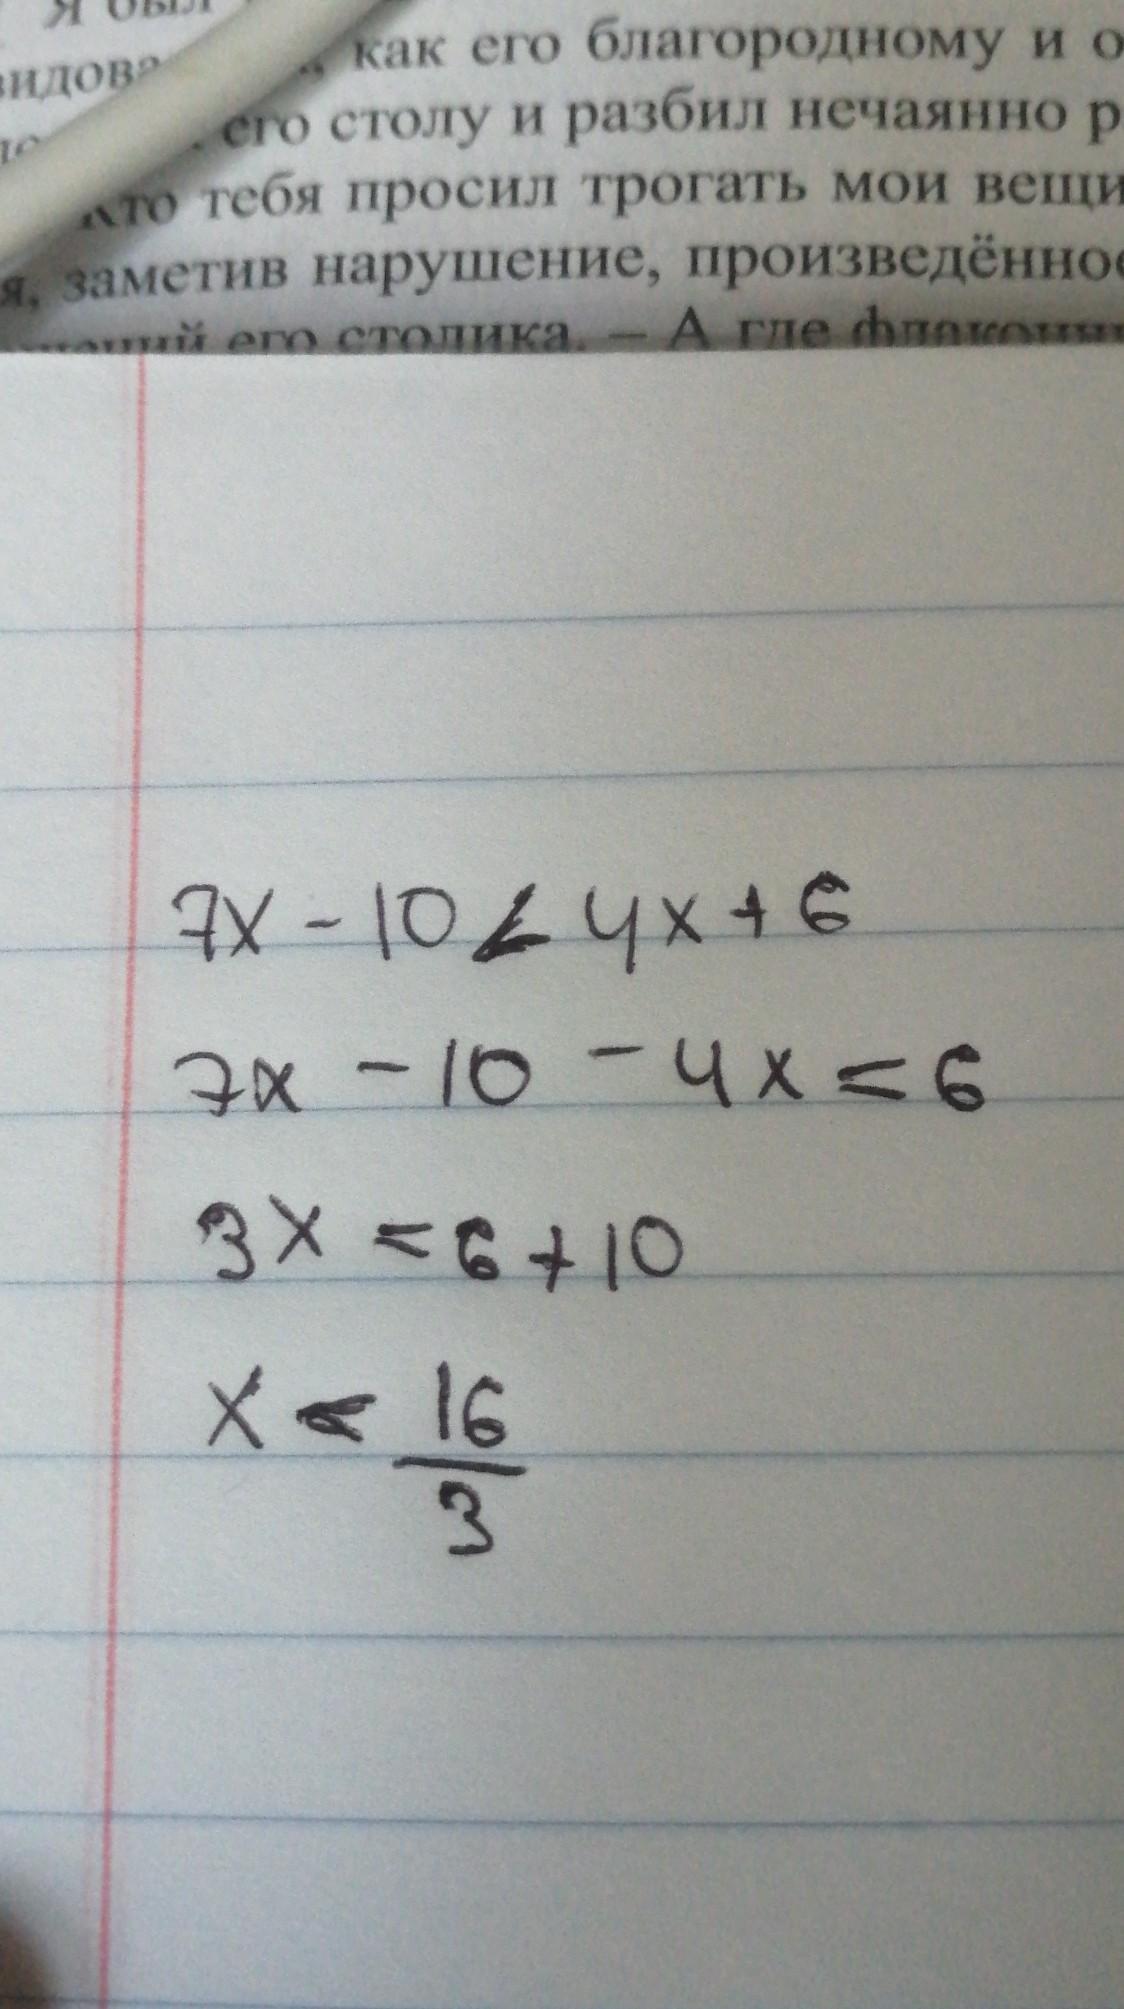 Я был
как его благородному и о
его столу и разбил нечаянно р
Кто тебя просил трогать мои вещи
я, заметив нарушение, произведённое
его столика. – А где флакончик
7x - 10 < 4x + 6
7x - 10 - 4x = 6
3x = 6 + 10
x < 16/3